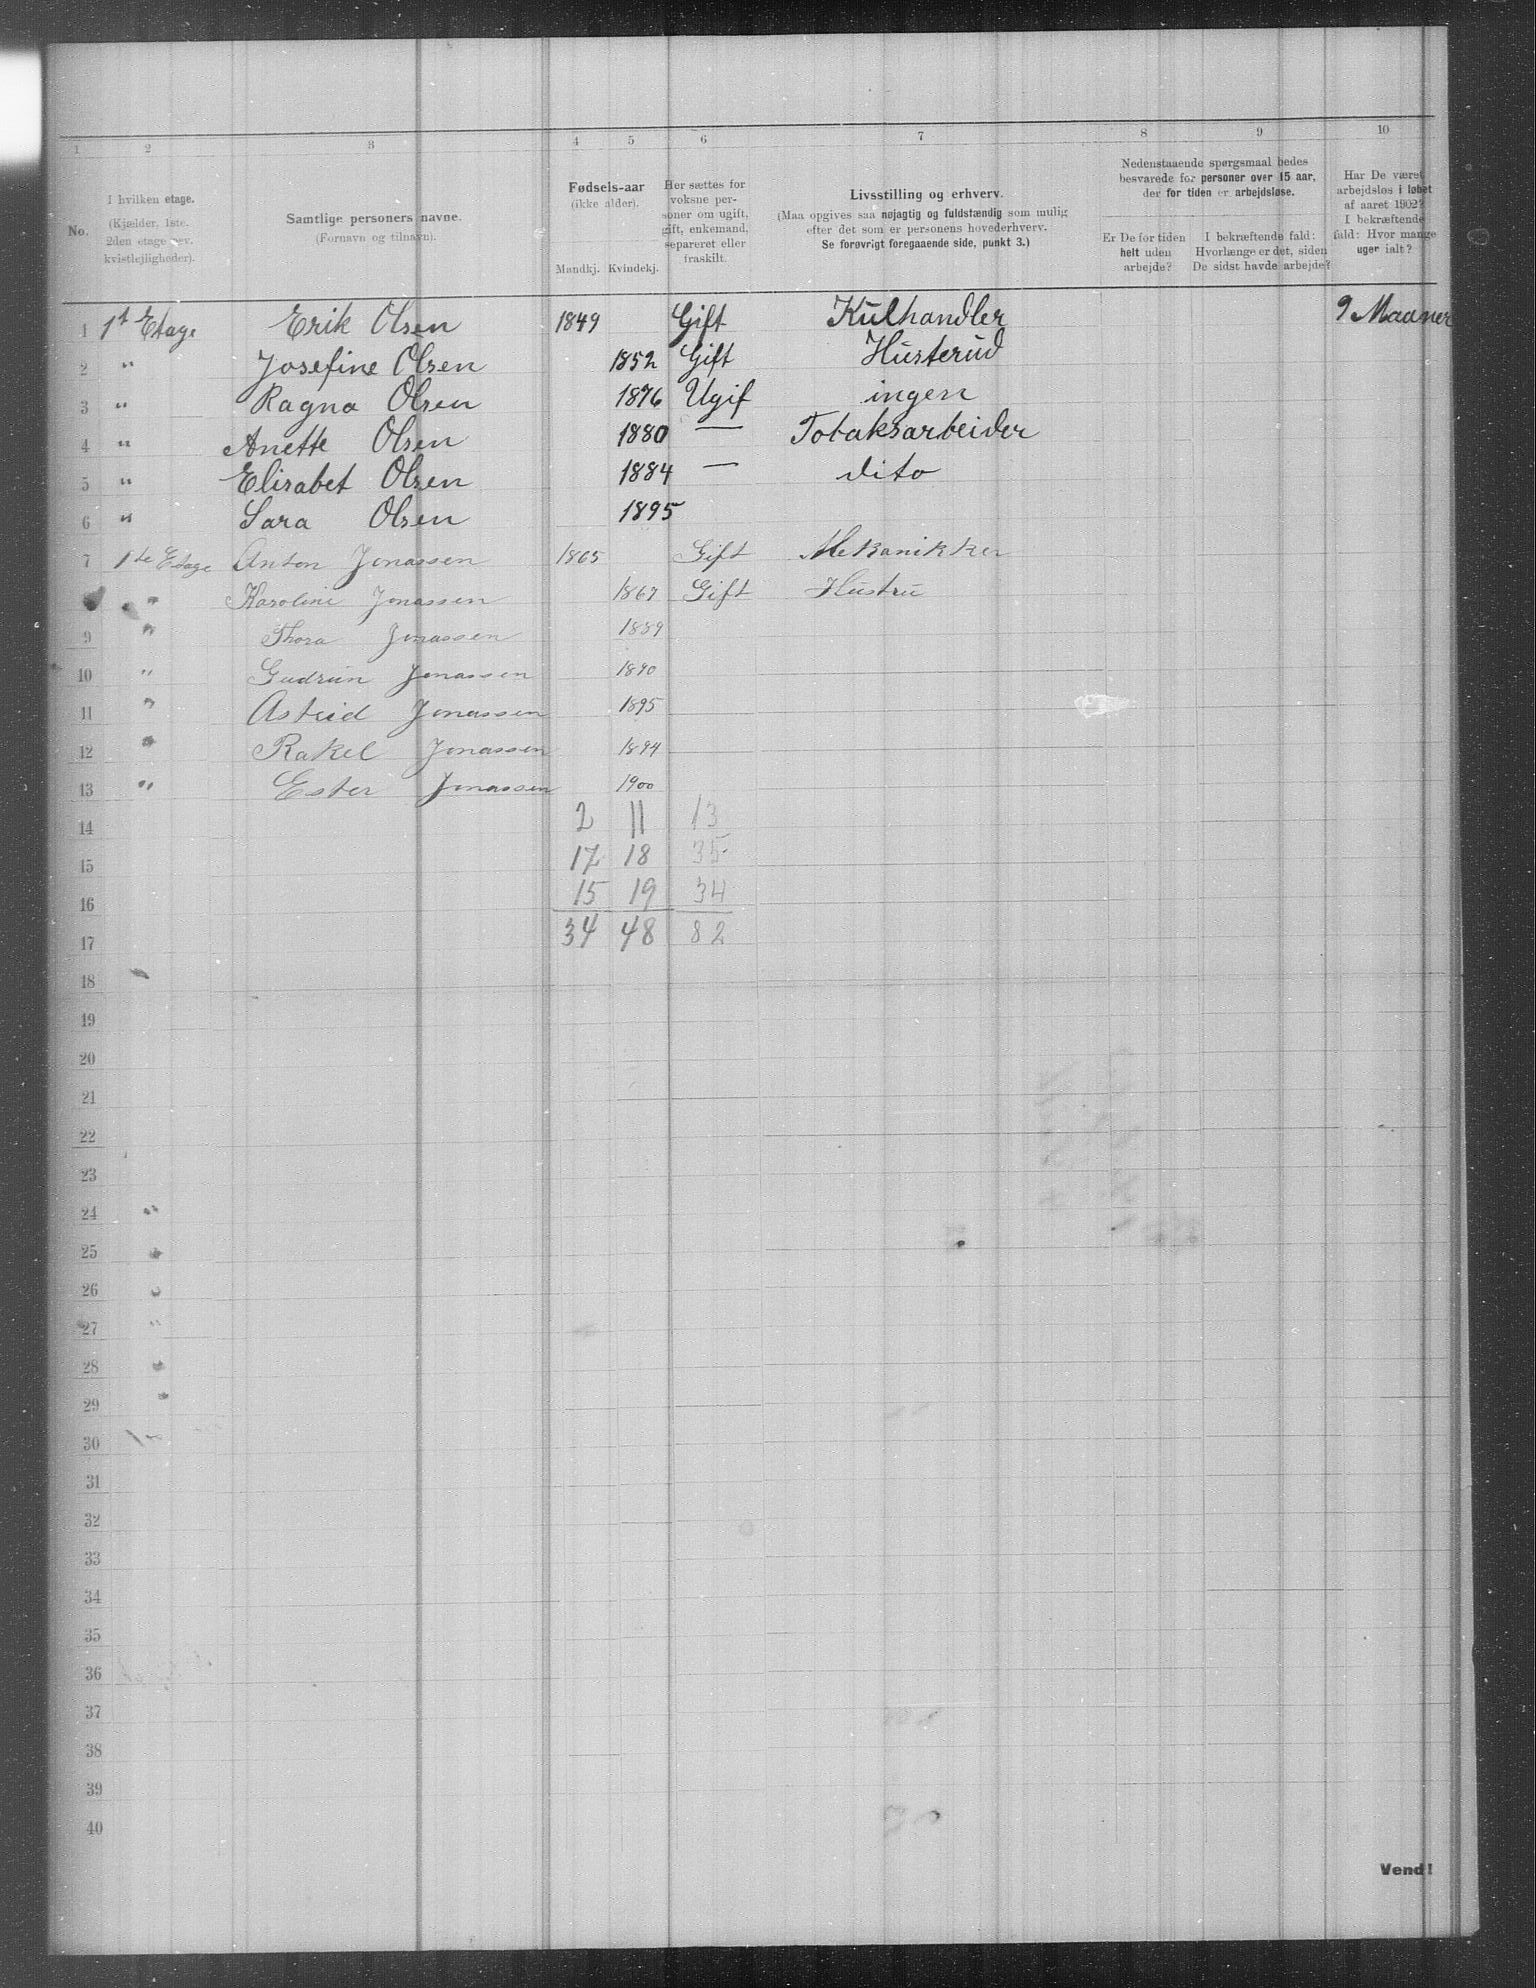 1 2 3 4 5 6 7 8 9 10
No.
I hvilken etage.
(Kjælder, 1ste,
2den etage osv.
kvistlejligheder).
Samtlige personers navne.
(Fornavn og tilnavn).
Fødsels-aar
(ikke alder).
Mandkj. Kvindekj.
Her sættes for
voksne per-
soner om ugift,
gift, enkemand,
separeret eller
fraskilt.
Livsstilling og erhverv.
(Maa opgives saa nøjagtig og fuldstændig som mulig
efter det som er personens hovederhverv.
Se forøvrigt foregaaende side, punkt 3.)
Nedenstaaende spørgsmaal bedes
besvarede for personer over 15 aar,
der for tiden er arbejdsløse.
Er De for tiden
helt uden
arbejde?
I bekræftende fald:
Hvorlænge er det, siden
De sidst havde arbejde?
Har De været
arbejdsløs i løbet
af aaret 1902?
I bekræftende
fald: Hvor mange
uger ialt?
1 1t Etage Erik Olsen 1849 Gift Kulhandler 9 Maaner
2 " Josefine Olsen 1852 Gift Husterud
3 " Ragna Olsen 1876 Ugif ingen
4 " Anette Olsen 1880 — Tobaksarbeider
5 " Elisabet Olsen 1884 — dito
6 " Sara Olsen 1895
7 1te Etage Anton Jonassen 1865 Gift Mekanikker
" Karoline Jonassen 1867 Gift Hustru
9 " Thora Jonassen 1889
10 " Gudrun Jonassen 1890
11 " Astrid Jonassen 1895
12 " Rakel Jonassen 1894
13 " Ester Jonassen 1900
14 2 11 13
15 17 18 35
16 15 19 34
17 34 48 82
18
19
20
21
22
23
24 "
25 "
26 "
27 "
28 "
29 "
30
31
32
33
34
35
36
37
38
39
40
Vend!